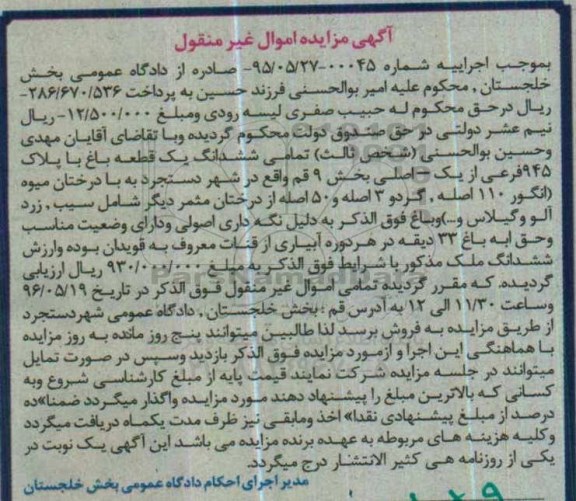 آگهی مزایده اموال غیر منقول
بموجب اجراییه شماره ۰۰۰۴۵-۹۵/۰۵/۲۷- صادره از دادگاه عمومی بخش
خلجستان , محکوم علیه امیر بوالحسنی فرزند حسین به پرداخت ۲۸۶/۶۷۰/۵۳۶-
ریال درحق محکوم له حبیب صفری لیسه رودی ومبلغ ۱۲/۵۰۰/۰۰۰- ریال
نیم عشر دولتی در حق صندوق دولت محکوم گردیده وبا تقاضای آقایان مهدی
وحسین بوالحسنی (شخص ثالث) تمامی ششدانگ یک قطعه باغ با پلاک
۹۴۵فرعی از یک – اصلی بخش ۹ قم واقع در شهر دستجرد به با درختان میوه
(انگور ۱۱۰ اصله , گردو ۳ اصله و ۵۰ اصله از درختان مثمر دیگر شامل سیب , زرد
آلو وگیلاس و..)وباغ فوق الذکر به دلیل نگه داری اصولی ودارای وضعیت مناسب
وحق ابه باغ ۳۳ دیقه در هردوره آبیاری از قنات معروف به قویدان بوده وارزش
ششدانگ ملک مذکور با شرایط فوق الذکر به مبلغ ۹۳۰/۰۰۰/۰۰۰ ریال ارزیابی
گردیده. که مقرر گردیده تمامی اموال غیر منقول فوق الذکر در تاریخ ۹۶/۰۵/۱۹
وساعت ۱۱/۳۰ الی ۱۲ به آدرس قم : بخش خلجستان , دادگاه عمومی شهردستجرد
از طریق مزایده به فروش برسد لذا طالبین میتوانند پنج روز مانده به روز مزایده
با هماهنگی این اجرا و ازمورد مزایده فوق الذکر بازدید وسپس در صورت تمایل
میتوانند در جلسه مزایده شرکت نمایند قیمت پایه از مبلغ کارشناسی شروع وبه
کسانی که بالاترین مبلغ را پیشنهاد دهند مورد مزایده واگذار میگردد ضمنا»ده
درصد از مبلغ پیشنهادی نقدا» اخذ ومابقی نیز ظرف مدت یکماه دریافت میگردد
وکلیه هزینه های مربوطه به عهده برنده مزایده می باشد این آگهی یک نوبت در
یکی از روزنامه هی کثیر الانتشار درج میگردد.
مدیر اجرای احکام دادگاه عمومی بخش خلجستان